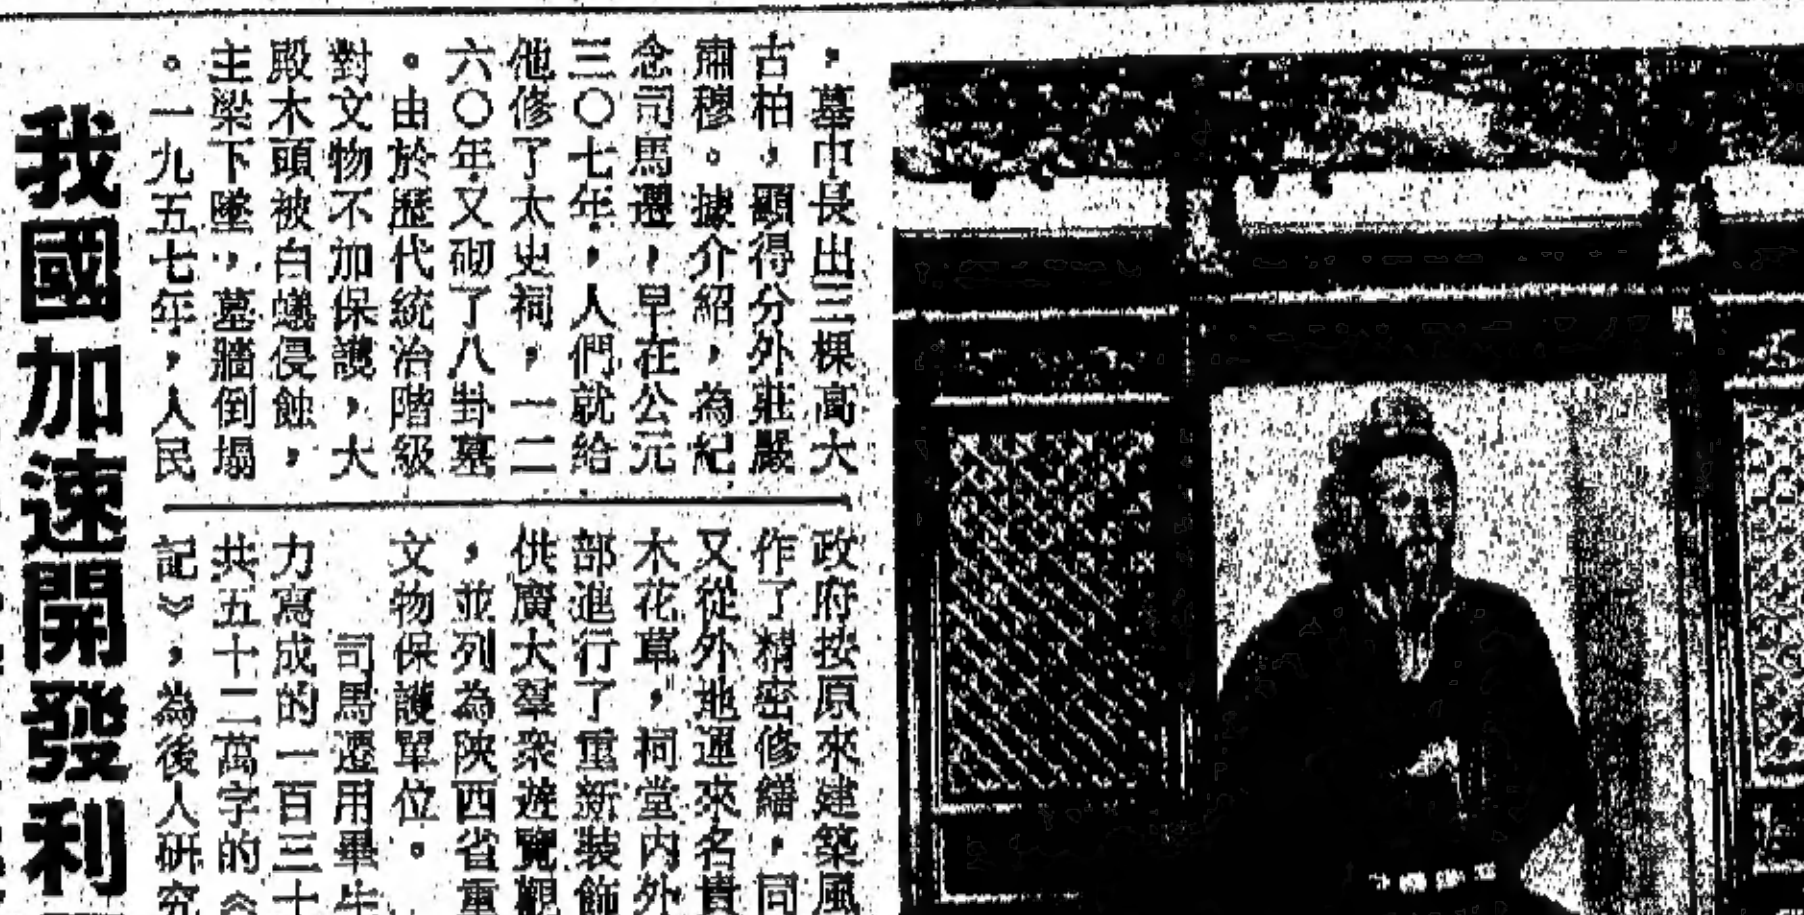 ，墓中長出三棵高大
古柏，顯得分外莊嚴
肅穆。據介紹，為紀
念司馬遷，早在公元
三〇七年，人們就给
他修了太史祠，一二
六〇年又砌了八卦墓
。由於歷代統治階級
對文物不加保護，大
殿木頭被白蟻侵蝕，
主梁下墜，墓牆倒塌
。一九五七年，人民
政府按原來建築風
作了精密修繕，同
又從外地運來名貴
木花草，祠堂内外
部進行了重新装飾
供廣大羣衆遊覽觀
，並列為陝西省重
文物保護單位。
司馬遷用畢生
力寫成的一百三十
共五十二萬字的《
記》，為後人研究
我國加速開發利